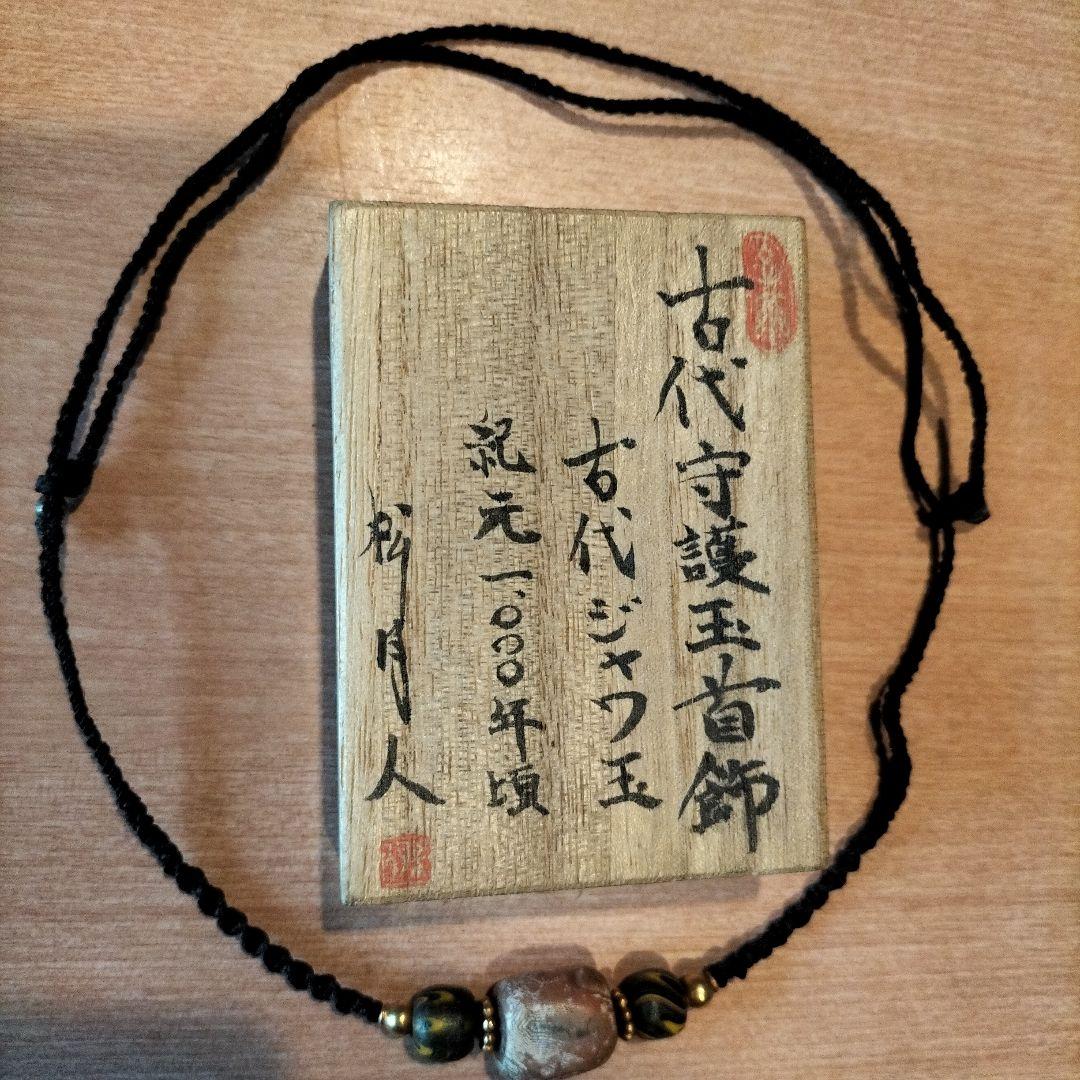 古代守護玉首飾
古代ジャワ玉
紀元一、〇〇〇年頃
松月人